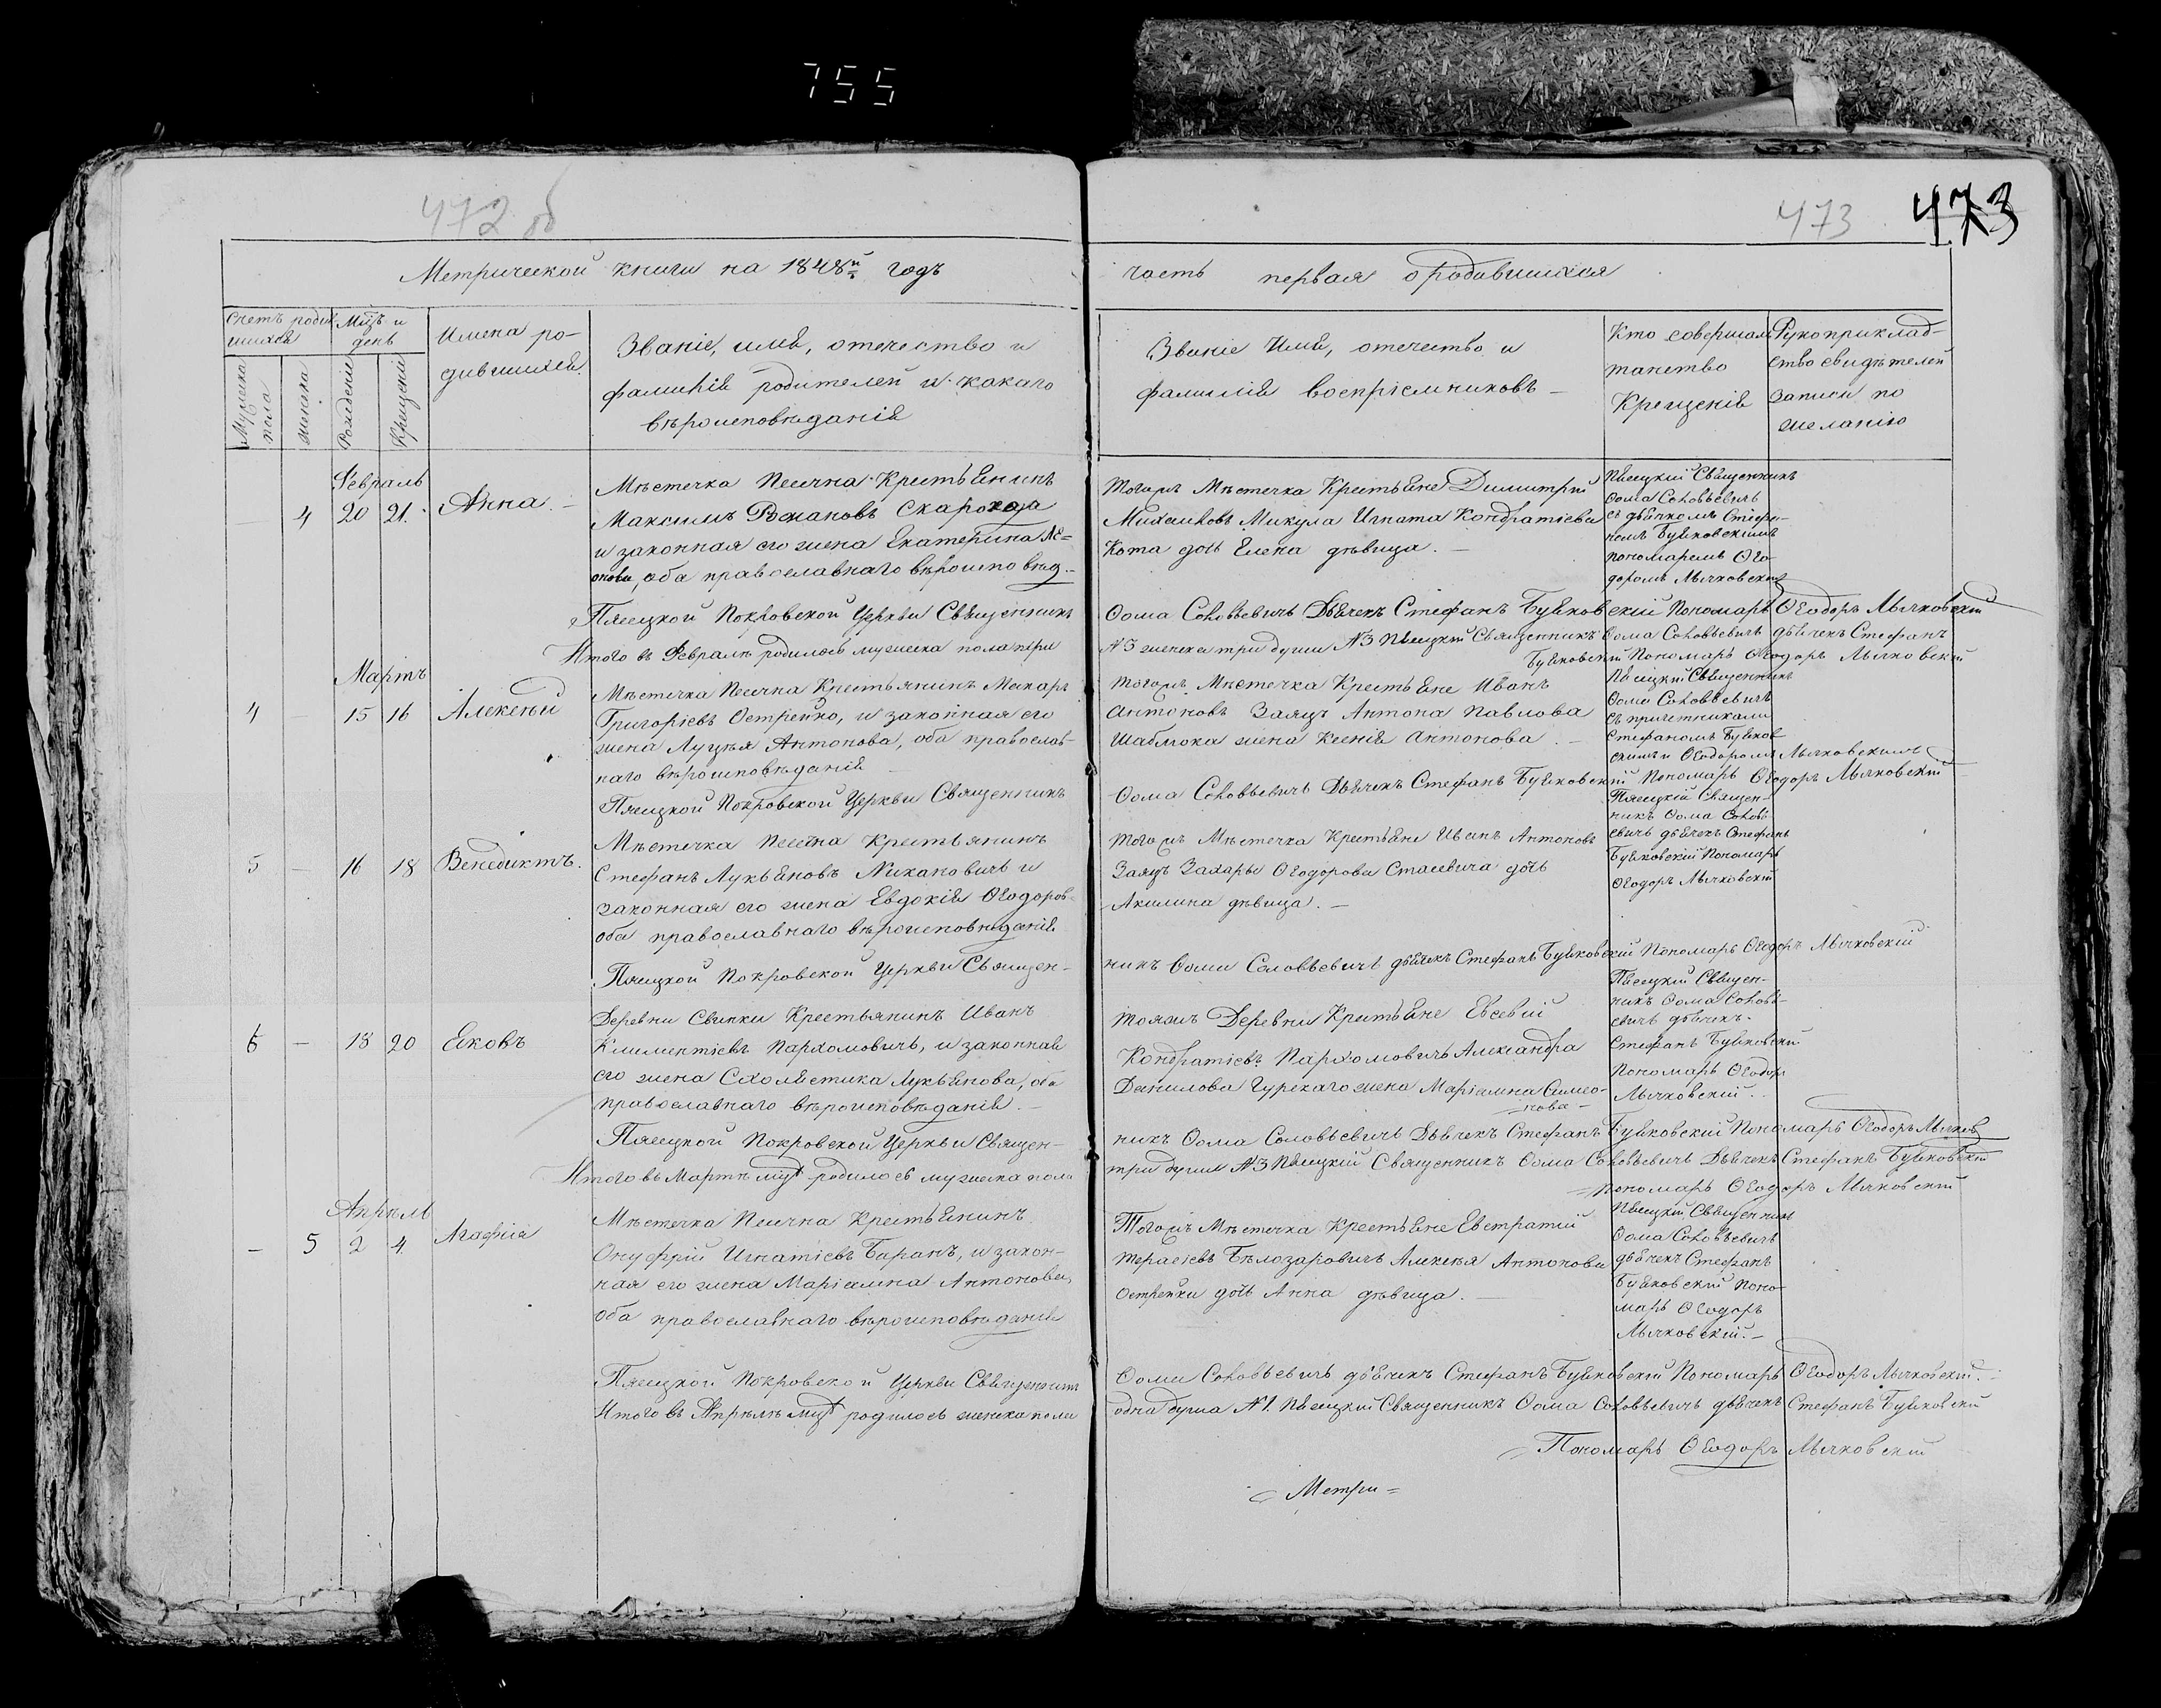 755
472 об
473
473
Метрической книги на 1848й годъ
часть первая о родившихся
Счетъ родив-
шихся
Мѣцъ и
день
Имена ро-
дившихся.
Званіе, имя, отечество и
фамилія родителей и какаго
вѣроисповѣданія
Мужеска
пола
женска
Рожденія
Крещенія
Званіе Имя, отечество и
фамилія воспріемниковъ —
Кто совершалъ
таинство
Крещенія
Рукоприклад-
ство свидѣтелей
записи по
желанію
Февраль
4 20 21. Анна. —
Мѣстечка Песчна Крестьянинъ
Максимъ Романовъ Скарохода
и законная его жена Екатерина Ле=
онова, оба православнаго вѣроисповѣд. —
Тогожъ Мѣстечка Крестьяне Димитрій
Михаиловъ Микула Игната Кондратіева
Кота дочь Елена дѣвица. —
Пясецкій Священникъ
Ѳома Соловьевичъ
съ дьячкомъ Стефа-
номъ Буйковскимъ
пономаремъ Ѳео-
доромъ Мычковскимъ
Пясецкой Покровской Церкви Священникъ
Ѳома Соловьевичъ Дьячекъ Стефанъ Буйковскій Пономарь Ѳеодоръ Мычковскій
Итого въ Февралѣ родилось мужеска пола три
№3 женска три души №3 Пясецкій Священникъ Ѳома Соловьевичъ дьячекъ Стефанъ
Буйковскій Пономарь Ѳеодоръ Мычковскій
Мартъ
4 — 15 16 Алексѣй
Мѣстечка Песчна Крестьянинъ Макаръ
Григоріевъ Острейко, и законная его
жена Луцея Антонова, оба православ-
наго вѣроисповѣданія —
Тогожъ Мѣстечка Крестьяне Иванъ
Антоновъ Заяцъ Антона Павлова
Шаблюка жена Ксенія Антонова. —
Пясецкій Священникъ
Ѳома Соловьевичъ
съ причетниками
Стефаномъ Буйков
скимъ и Ѳеодоромъ Мычковскимъ
Пясецкой Покровской Церкви Священникъ
Ѳома Соловьевичъ Дьячекъ Стефанъ Буйковскій Пономарь Ѳеодоръ Мычковскій
5 — 16 18 Венедиктъ.
Мѣстечка Песчна Крестьянинъ
Стефанъ Лукьяновъ Никановичъ и
законная его жена Евдокія Ѳеодоров
оба православнаго вѣроисповѣданія
Тогожъ Мѣстечка Крестьяне Иванъ Антоновъ
Заяцъ Захарья Ѳеодорова Стасевича дочь
Акилина дѣвица. —
Пясецкій Священ-
никъ Ѳома Соловь
евичъ дьячекъ Стефанъ
Буйковскій Пономарь
Ѳеодоръ Мычковскій
Пясецкой Покровской Церкви Священ-
никъ Ѳома Соловьевичъ дьячекъ Стефанъ Буйковскій Пономарь Ѳеодоръ Мычковскій
6 — 18 20 Яковъ
Деревни Свинки Крестьянинъ Иванъ
Климентіевъ Пархомовичъ, и законная
его жена Схолястика Лукьянова, оба
православнаго вѣроисповѣданія. —
Тояжъ Деревни Крестьяне Евсевій
Кондратіевъ Пархомовичъ Александра
Данилова Гурскаго жена Маріанна Симео-
нова —
Пясецкій Священ-
никъ Ѳома Соловь-
евичъ дьячекъ
Стефанъ Буйковскій
Пономарь Ѳеодоръ
Мычковскій.
Пясецкой Покровской Церкви Священ-
никъ Ѳома Соловьевичъ Дьячекъ Стефанъ Буйковскій Пономарь Ѳеодоръ Мычков
Итого въ Мартѣ мцѣ родилось мужеска пола
три души №3 Пясецкій Священникъ Ѳома Соловьевичъ Дьячекъ Стефанъ Буйковскій
Пономарь Ѳеодоръ Мычковскій
Апрѣль
— 5 2 4 Агафія
Мѣстечка Песчна Крестьянинъ
Онуфрій Игнатіевъ Баранъ, и закон-
ная его жена Маріанна Антонова,
оба православнаго вѣроисповѣданія
Тогожъ Мѣстечка Крестьяне Евстратій
Тарасіевъ Бѣлозаровичъ Алексѣя Антонова
Острейки дочь Анна дѣвица. —
Пясецкій Священникъ
Ѳома Соловьевичъ
дьячекъ Стефанъ
Буйковскій Поно-
марь Ѳеодоръ
Мычковскій. —
Пясецкой Покровской Церкви Священникъ
Ѳома Соловьевичъ дьячекъ Стефанъ Буйковскій Пономарь Ѳеодоръ Мычковскій.
Итого въ Апрѣлѣ мцѣ родилось женска пола
одна душа №1. Пясецкій Священникъ Ѳома Соловьевичъ дьячекъ Стефанъ Буйковскій
Пономарь Ѳеодоръ Мычковскій
Метри=